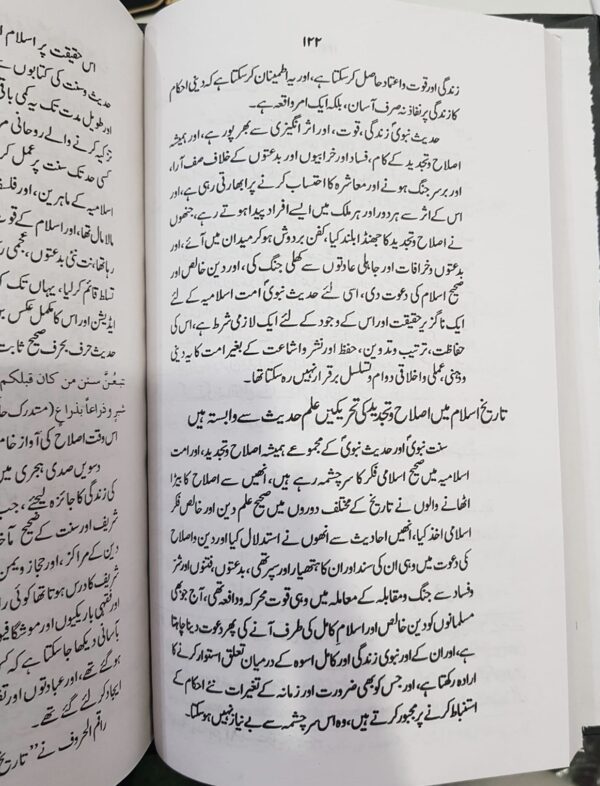 ۱۲۲
زندگی اور قوت و اعتماد حاصل کرسکتا ہے، اور یہ اطمینان کرسکتا ہے کہ دینی احکام
کا زندگی پر نفاذ نہ صرف آسان، بلکہ ایک امر واقعہ ہے۔
حدیث نبویؐ زندگی، قوت، اور اثر انگیزی سے بھرپور ہے، اور ہمیشہ
اصلاح و تجدید کے کام، فساد اور خرابیوں اور بدعتوں کے خلاف صف آرا،
اور برسر جنگ ہونے اور معاشرہ کا احتساب کرنے پر ابھارتی رہی ہے، اور
اس کے اثر سے ہر دور اور ہر ملک میں ایسے افراد پیدا ہوتے رہے، جنھوں
نے اصلاح و تجدید کا جھنڈا بلند کیا، کفن بردوش ہوکر میدان میں آئے، اور
بدعتوں و خرافات اور جاہلی عادتوں سے کھلی جنگ کی، اور دین خالص اور
صحیح اسلام کی دعوت دی، اسی لئے حدیث نبویؐ امت اسلامیہ کے لئے
ایک ناگزیر حقیقت اور اس کے وجود کے لئے ایک لازمی شرط ہے، اس کی
حفاظت، ترتیب و تدوین، حفظ اور نشر و اشاعت کے بغیر امت کا یہ دینی
و ذہنی، عملی و اخلاقی دوام و تسلسل برقرار نہیں رہ سکتا تھا۔
تاریخ اسلام میں اصلاح و تجدید کی تحریکیں علم حدیث سے وابستہ ہیں
سنت نبویؐ اور حدیث نبویؐ کے مجموعے ہمیشہ اصلاح و تجدید، اور امت
اسلامیہ میں صحیح اسلامی فکر کا سرچشمہ رہے ہیں، انھیں سے اصلاح کا بیڑا
اٹھانے والوں نے تاریخ کے مختلف دوروں میں صحیح علم دین اور خالص فکر
اسلامی اخذ کیا، انھیں احادیث سے انھوں نے استدلال کیا اور دین و اصلاح
کی دعوت میں وہی ان کی سند اور ان کا ہتھیار اور سپر تھی، بدعتوں، فتنوں اور شر
و فساد سے جنگ و مقابلہ کے معاملہ میں وہی قوت محرکہ و دافعہ تھی، آج جو بھی
مسلمانوں کو دین خالص اور اسلام کامل کی طرف آنے کی پھر دعوت دینا چاہتا
ہے، اور ان کے اور نبوی زندگی اور کامل اسوہ کے درمیان تعلق استوار کرنے کا
ارادہ رکھتا ہے، اور جس کو بھی ضرورت اور زمانہ کے تغیرات نئے احکام کے
استنباط کرنے پر مجبور کرتے ہیں، وہ اس سرچشمہ سے بے نیاز نہیں ہوسکتا۔
اس حقیقت پر اسلام
حدیث و سنت کی کتابوں سے
اور طویل مدت تک یہ کمی باقی
تزکیہ کرنے والے روحانی
کسی حد تک سنت پر عمل
اسلامیہ کے ماہرین، اور
مالا مال تھا، اور اسلام کے
رہا تھا، نت نئی بدعتوں، عجمی
تسلط قائم کرلیا، یہاں تک
ایڈیشن اور اس کا مکمل عکس
حدیث حرف بحرف صحیح ثابت
سنن من كان قبلكم
وذراعاً بذراع (مستدرک
اس وقت اصلاح کی آواز
دسویں صدی ہجری میں
کی زندگی کا جائزہ لیجئے، جب
شریف اور سنت کے صحیح
دین کے مراکز، اور حجاز و یمن
شریف کا درس ہوتا تھا کوئی
اور فقہی باریکیوں اور
بآسانی دیکھا جاسکتا ہے کہ
ہوگئے تھے، اور عبادتوں اور
ایجاد کرلئے گئے تھے۔
راقم الحروف نے ”تاریخ